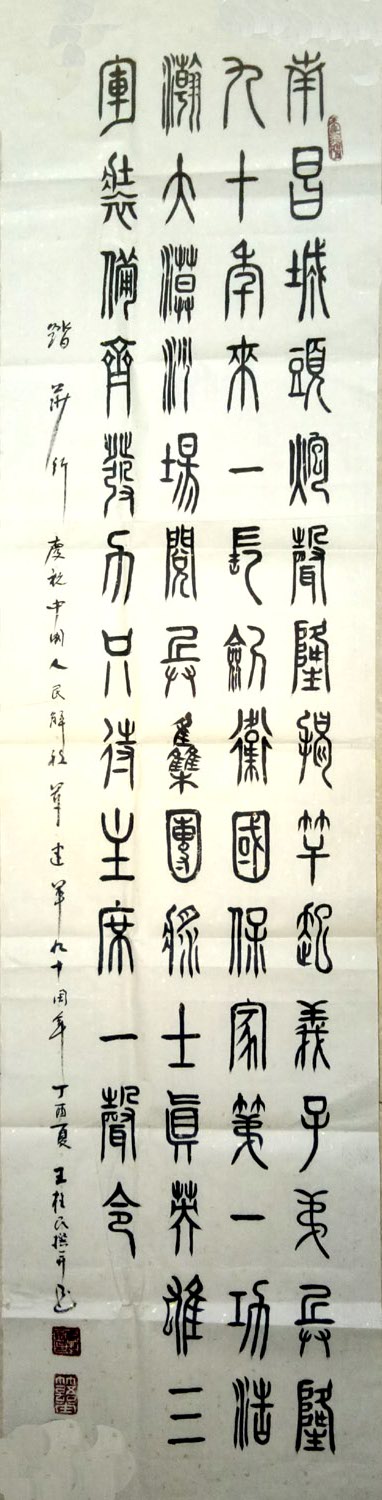 南昌城頭炮聲隆揭竿起義子弟兵隆
九十年來一長劍衛國保家第一功浩
瀚大漠沙場閱兵集團將士眞英雄三
軍裝備齊發力只待主席一聲令
踏莎行 慶祝中國人民解放軍建軍九十周年 丁酉夏 王桂民撰并書